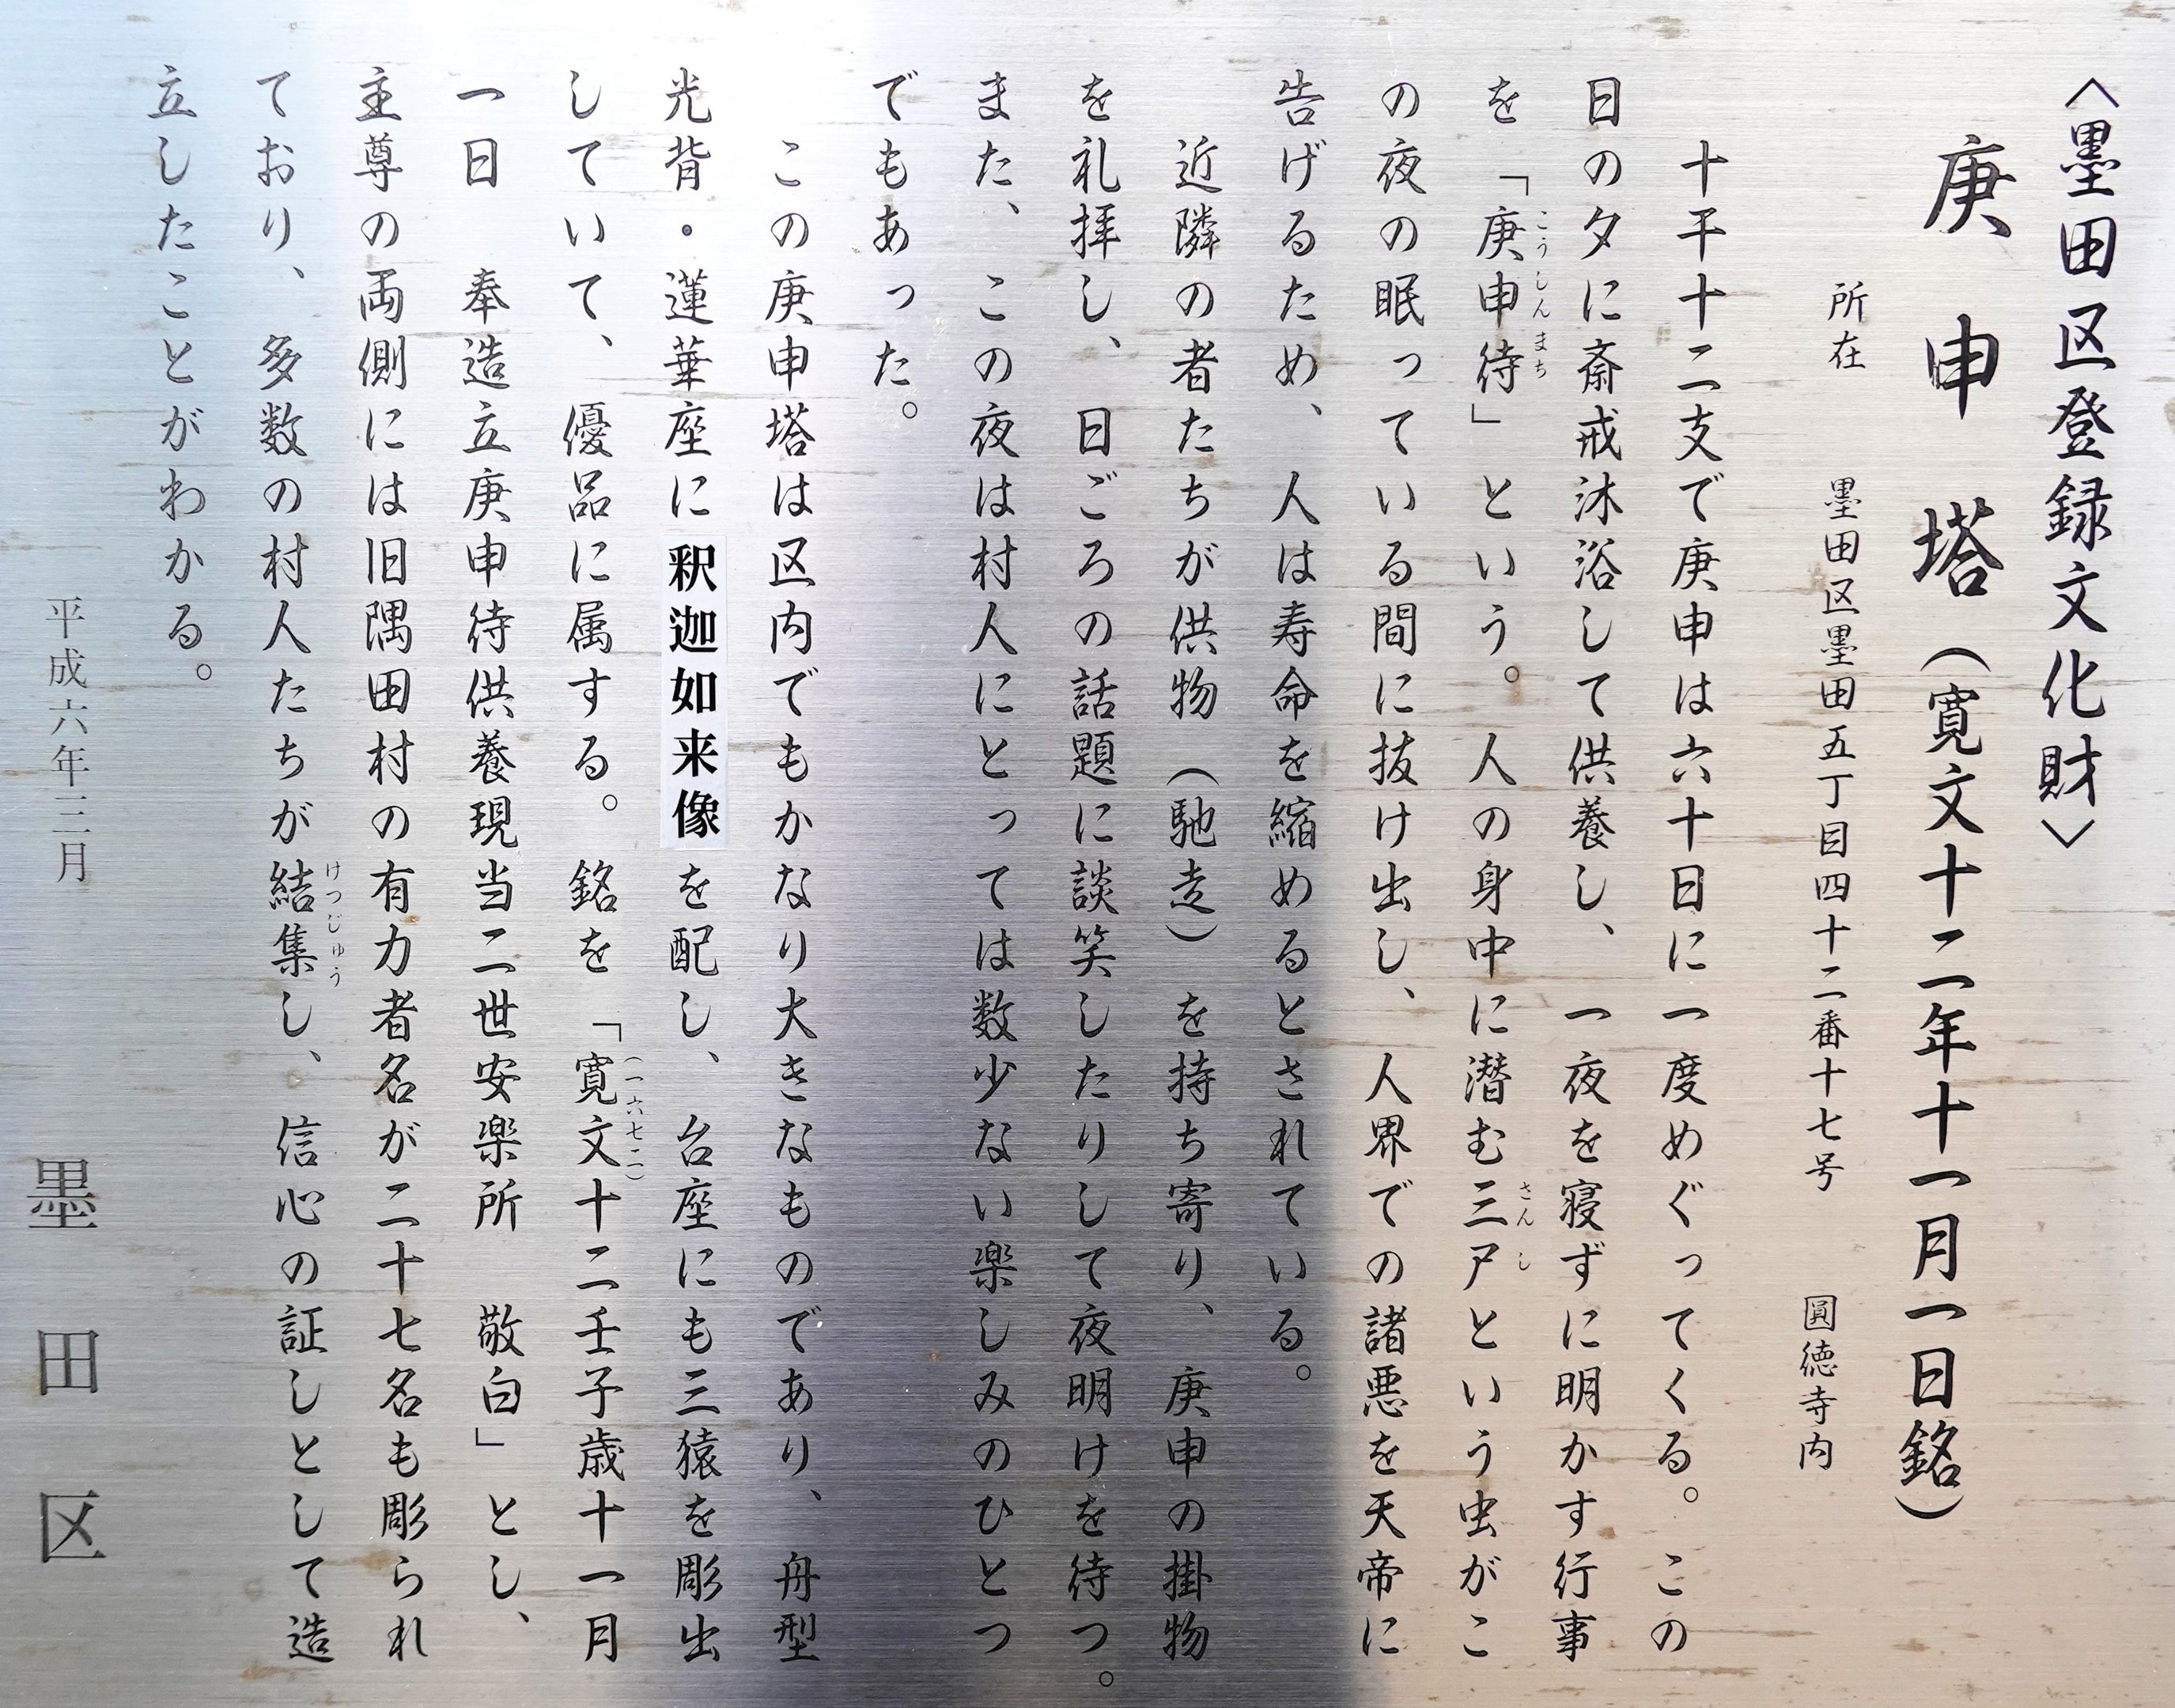 〈墨田区登録文化財〉
庚申塔（寛文十二年十一月一日銘）
所在　墨田区墨田五丁目四十二番十七号　圓徳寺内
十干十二支で庚申は六十日に一度めぐってくる。この
日の夕に斎戒沐浴して供養し、一夜を寝ずに明かす行事
を「庚申待」という。人の身中に潜む三尸という虫がこ
こうしんまち
さんし
の夜の眠っている間に抜け出し、人界での諸悪を天帝に
告げるため、人は寿命を縮めるとされている。
近隣の者たちが供物（馳走）を持ち寄り、庚申の掛物
を礼拝し、日ごろの話題に談笑したりして夜明けを待つ。
また、この夜は村人にとっては数少ない楽しみのひとつ
でもあった。
この庚申塔は区内でもかなり大きなものであり、舟型
光背・蓮華座に釈迦如来像を配し、台座にも三猿を彫出
していて、優品に属する。銘を「寛文十二壬子歳十一月
（一六七二）
一日　奉造立庚申待供養現当二世安楽所　敬白」とし、
主尊の両側には旧隅田村の有力者名が二十七名も彫られ
ており、多数の村人たちが結集し、信心の証しとして造
けつじゅう
立したことがわかる。
平成六年三月
墨田区